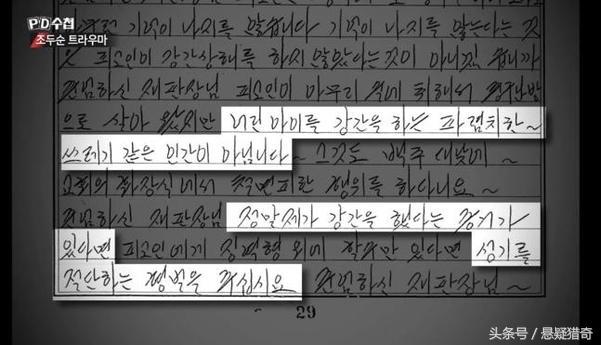 PD수첩
조두순 트라우마
기억이 나지를 않습니다 기억이 나지를 않는다는 것
은 피고인이 강간상해를 하지 않았다는 것이 아니겠습니까
존경하신 재판장님 피고인이 아무리 술에 취해서
으로 살아 왔지만 어린아이를 강간을 하는 파렴치한~
쓰레기 같은 인간이 아닙니다~ 그것도 백주 대낮에~
교회의 화장실에서 철면피한 행위를 하다니요~
존경하신 재판장님 정말제가 강간을 했다는 증거가
있다면 피고인에게 징역형 외에 할 수만 있다면 성기를
절단하는 형벌을 주십시요 존경하신 재판장님~
29
头条号 / 悬疑猎奇